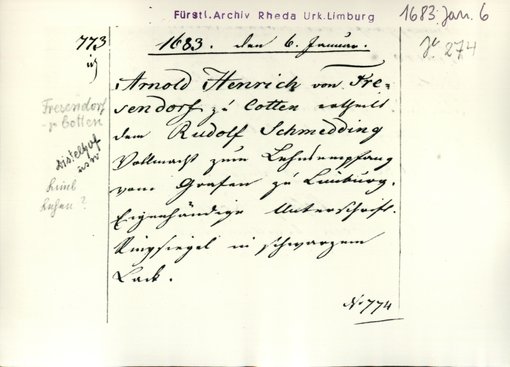 Fürstl. Archiv Rheda Urk. Limburg
1683 Jan. 6
773
1683. den 6. Januar.
Je. 274
Arnold Henrich von Fre-
sendorf zu Cotten ertheilt
dem Rudolf Schmedding
Vollmacht zum Lehnsempfang
vom Grafen zu Limburg.
Eigenhändige Unterschrift.
Ringsiegel in schwarzem
Lack.
No 774
Fresendorf
- zu Cotten
Distelhof